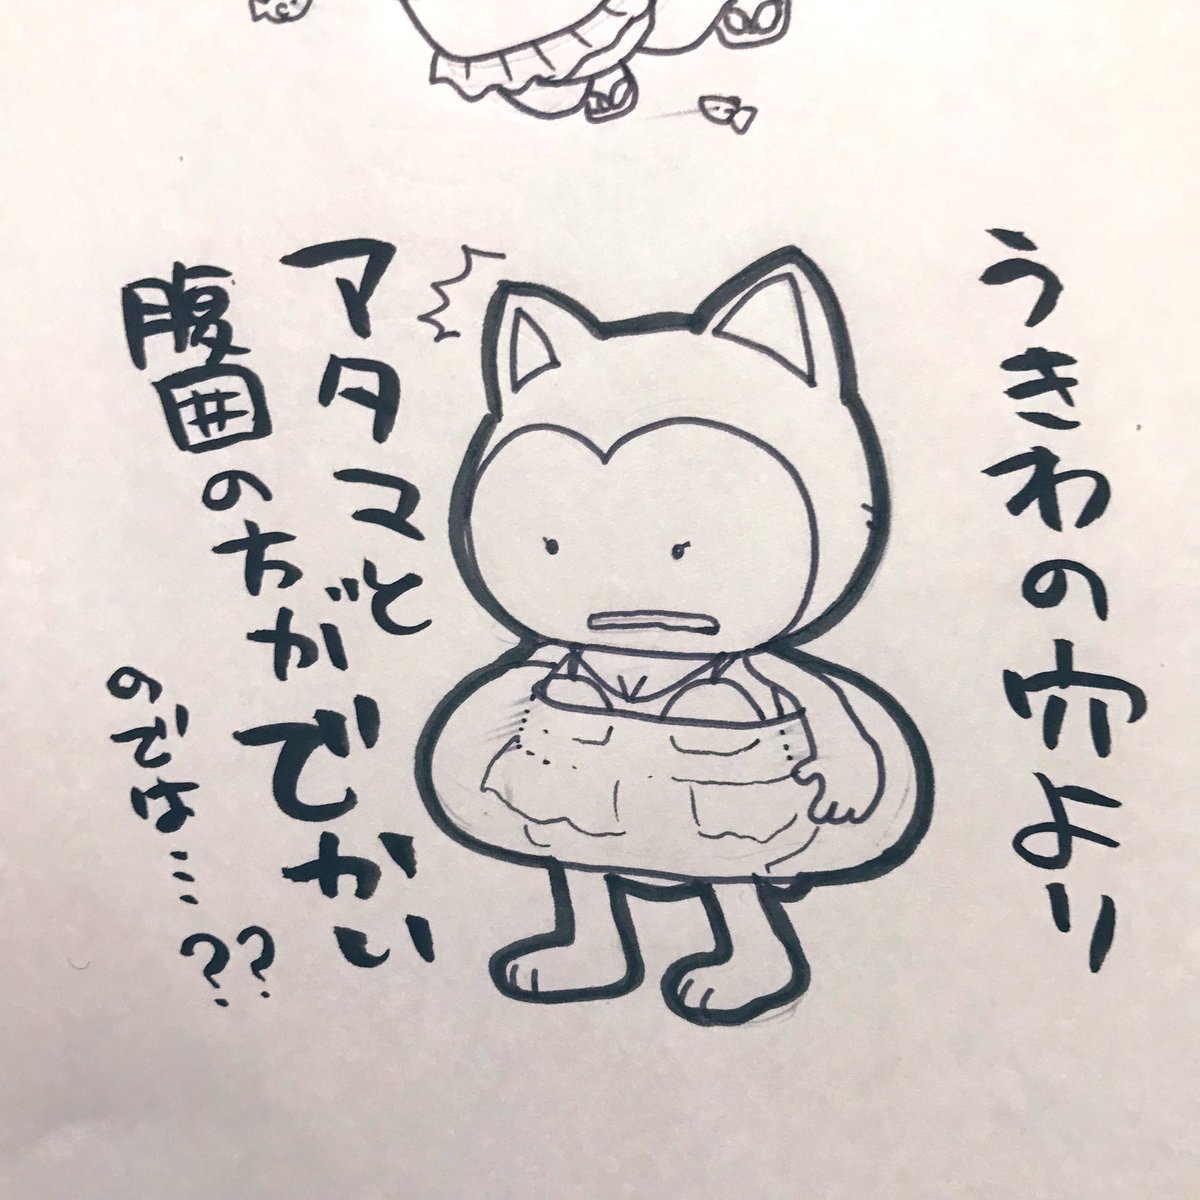 うきわの穴より
アタマと
腹囲の方がでかい
のでは…??